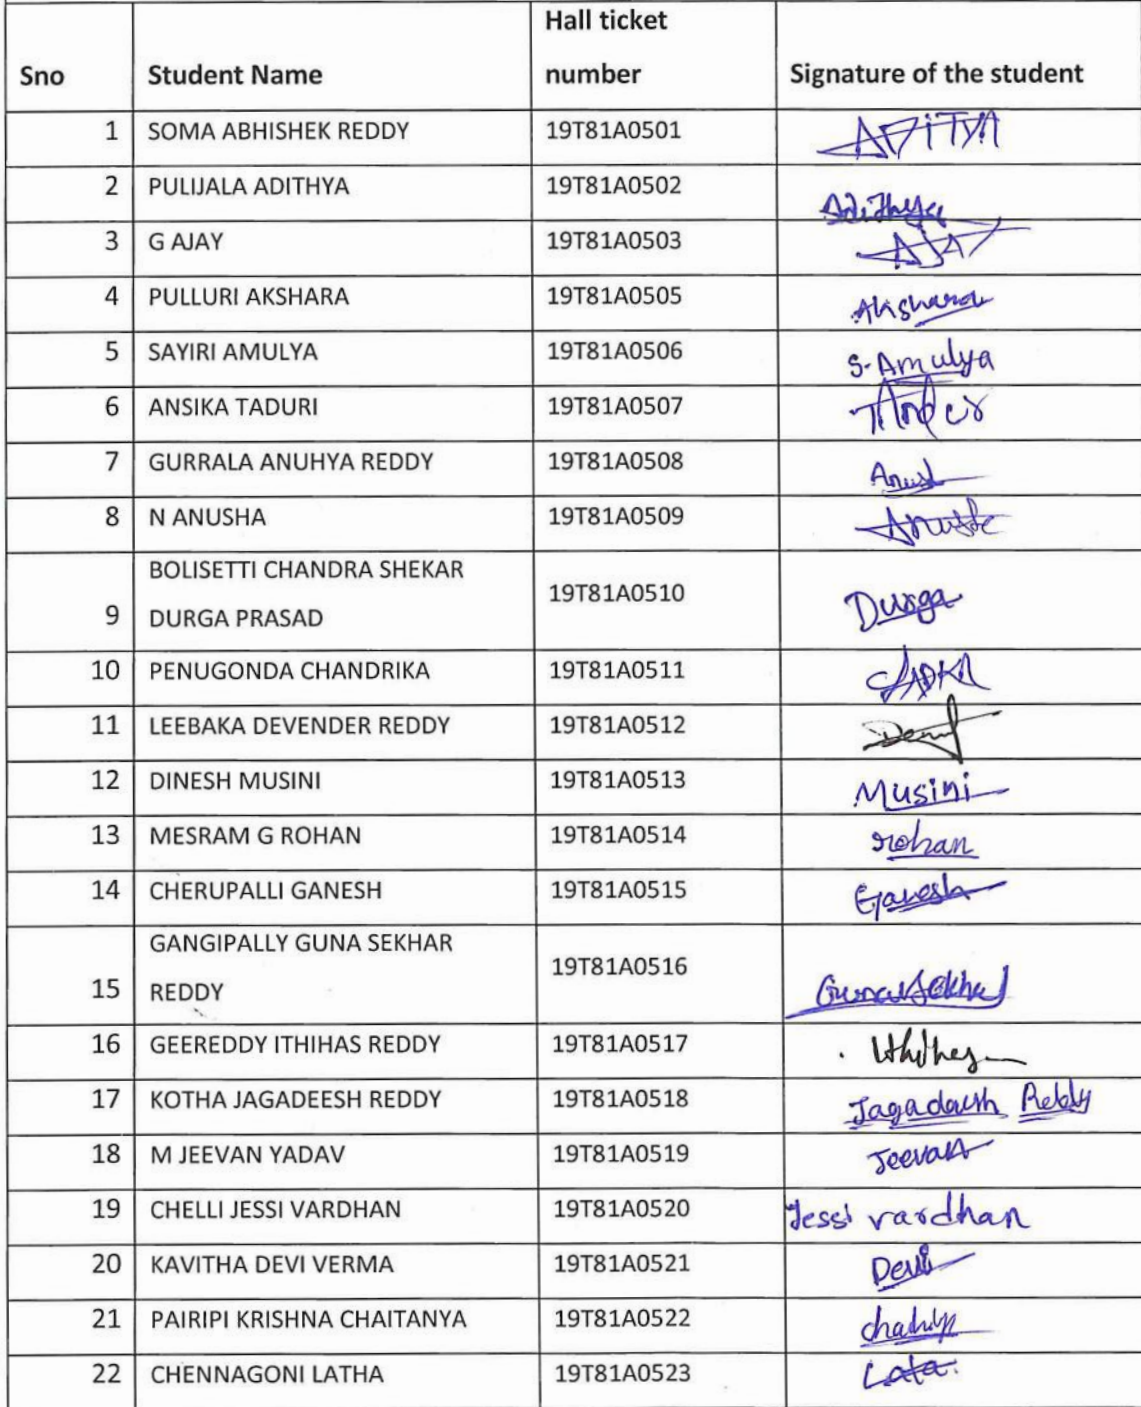 Hall ticket
Sno Student Name number Signature of the student
1 SOMA ABHISHEK REDDY 19T81A0501 ADITYA
2 PULIJALA ADITHYA 19T81A0502 Adithya
3 G AJAY 19T81A0503 AJAY
4 PULLURI AKSHARA 19T81A0505 Akshara
5 SAYIRI AMULYA 19T81A0506 S-Amulya
6 ANSIKA TADURI 19T81A0507
7 GURRALA ANUHYA REDDY 19T81A0508
8 N ANUSHA 19T81A0509
BOLISETTI CHANDRA SHEKAR
9 DURGA PRASAD 19T81A0510 Durga
10 PENUGONDA CHANDRIKA 19T81A0511
11 LEEBAKA DEVENDER REDDY 19T81A0512
12 DINESH MUSINI 19T81A0513 Musini
13 MESRAM G ROHAN 19T81A0514 rohan
14 CHERUPALLI GANESH 19T81A0515 Ganesh
GANGIPALLY GUNA SEKHAR
15 REDDY 19T81A0516
16 GEEREDDY ITHIHAS REDDY 19T81A0517
17 KOTHA JAGADEESH REDDY 19T81A0518 Reddy
18 M JEEVAN YADAV 19T81A0519 Jeevan
19 CHELLI JESSI VARDHAN 19T81A0520 Jessi vardhan
20 KAVITHA DEVI VERMA 19T81A0521 Devi
21 PAIRIPI KRISHNA CHAITANYA 19T81A0522
22 CHENNAGONI LATHA 19T81A0523 Lata.